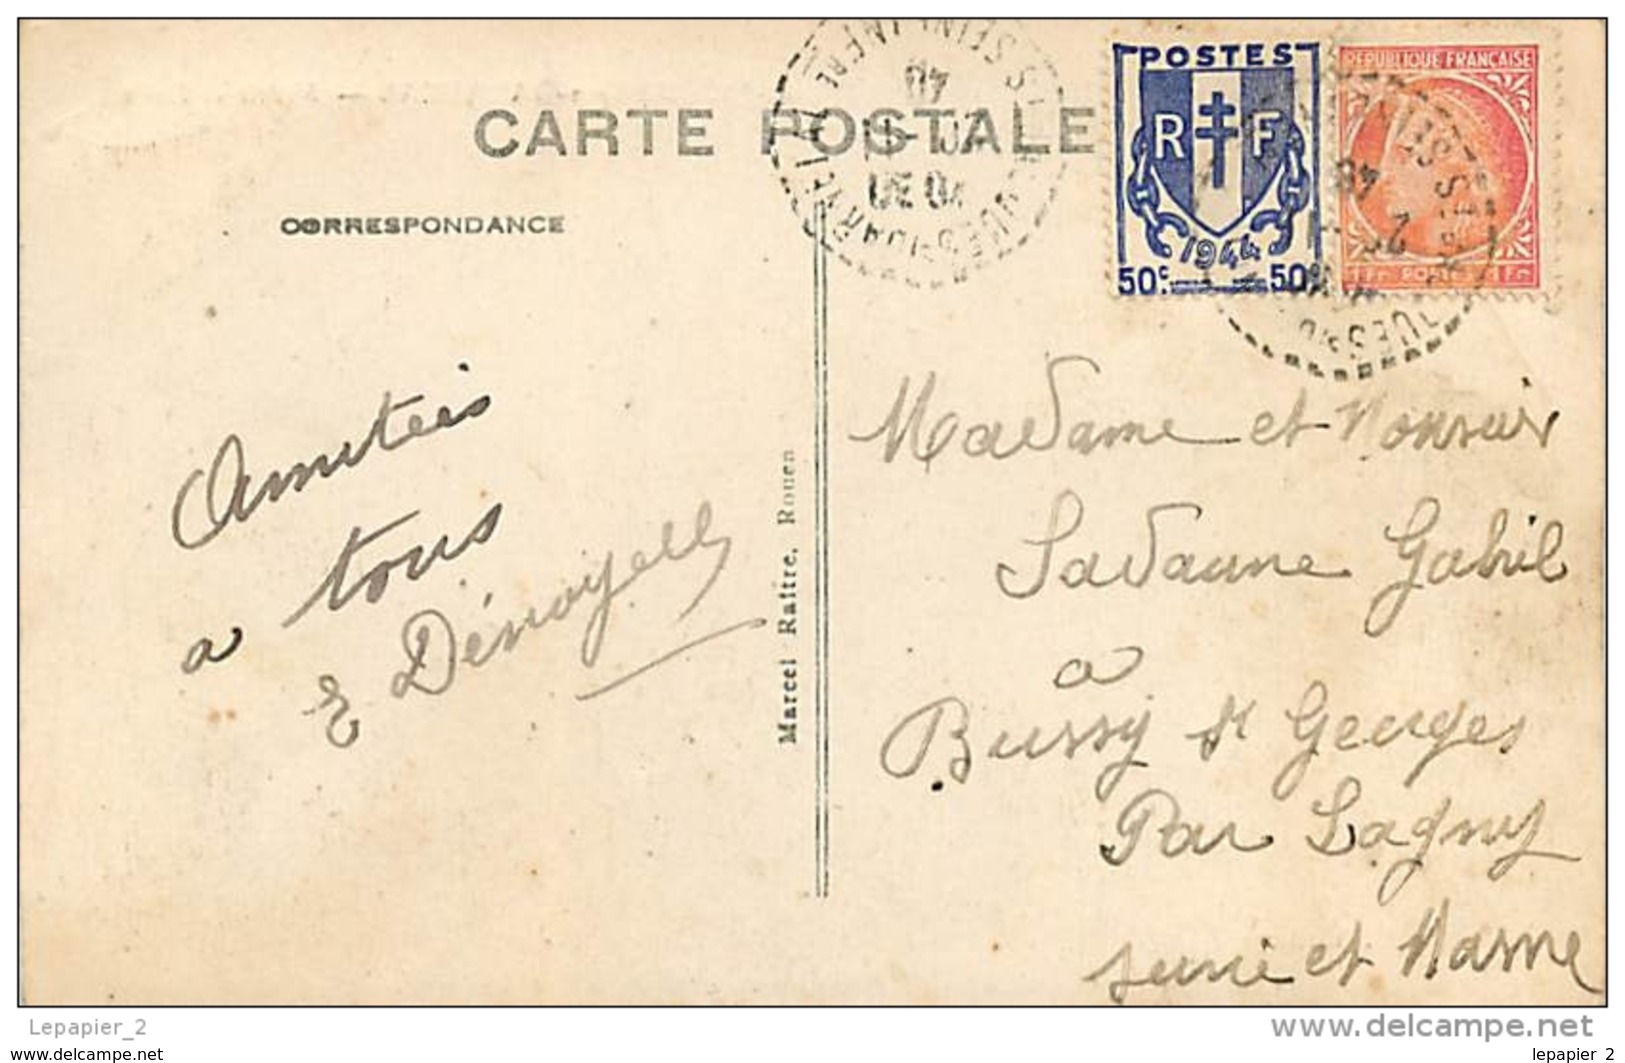 CARTE POSTALE
CORRESPONDANCE
POSTES
R F
1944
50c. 50c.
REPUBLIQUE FRANÇAISE
1Fc POSTES 1Fc
SEINE INFRE
Amitiés
a tous
E Dénoyelle
Marcel Raître, Rouen
Madame et Monsieur
Sadaune Gabril
a
Bussy St Georges
Par Lagny
seine et Marne
Lepapier_2
www.delcampe.net
lepapier_2
www.delcampe.net
lepapier_2